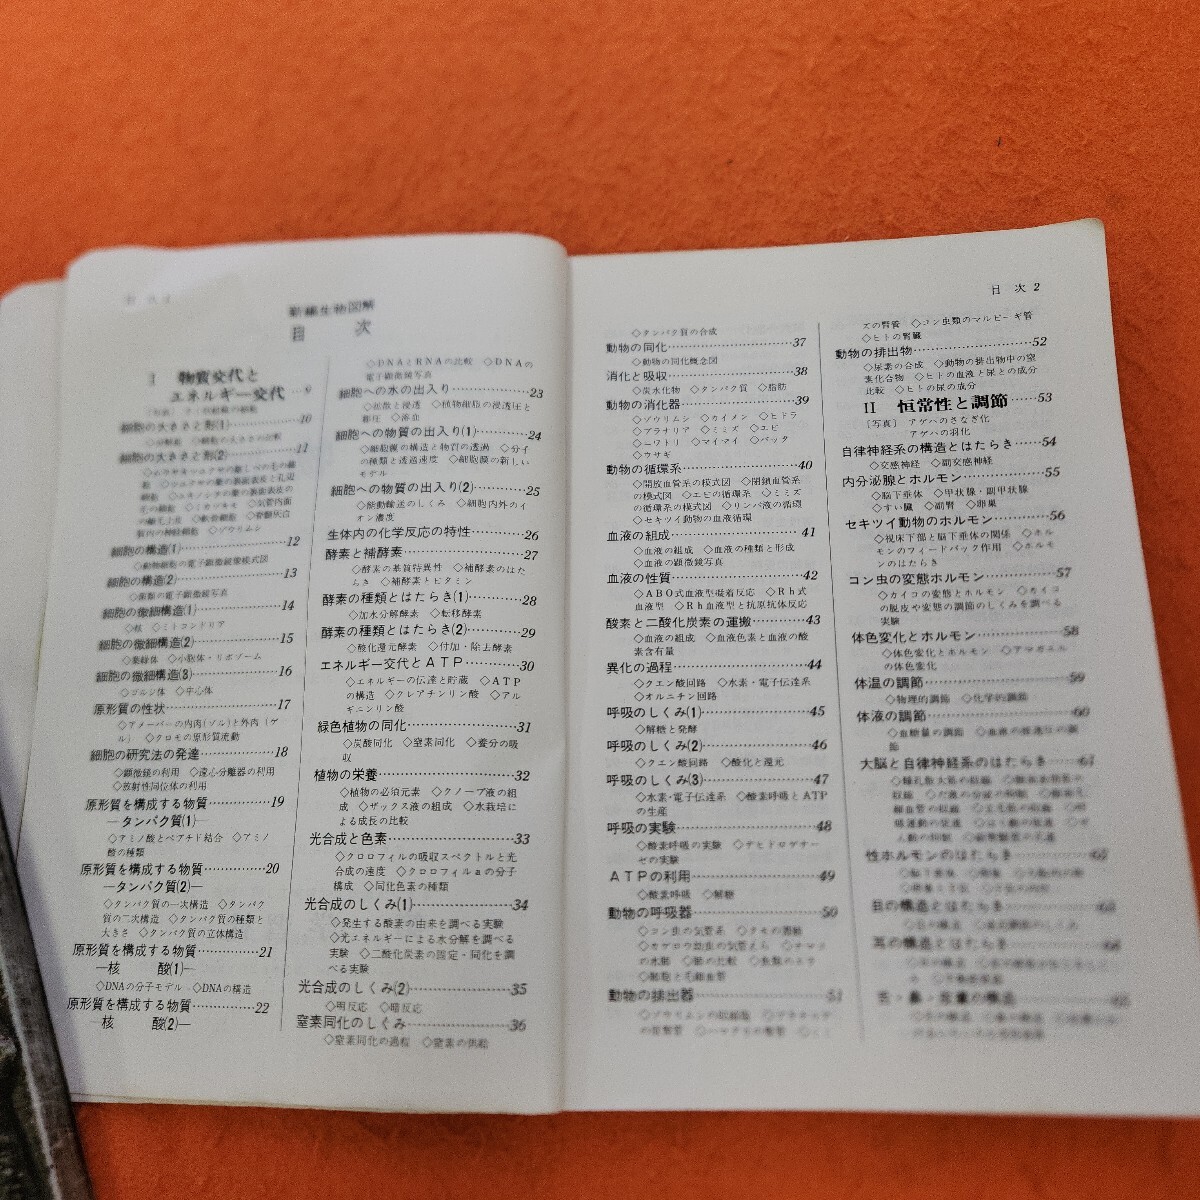 新編生物図解
目 次
I 物質交代と
エネルギー交代……9
細胞の大きさと形(1)……10
細胞の大きさと形(2)……11
細胞の構造(1)……12
◇動物細胞の電子顕微鏡模式図
細胞の構造(2)……13
細胞の微細構造(1)……14
◇核 ◇ミトコンドリア
細胞の微細構造(2)……15
◇葉緑体 ◇小胞体・リボゾーム
細胞の微細構造(3)……16
◇ゴルジ体 ◇中心体
原形質の性状……17
◇アメーバーの内肉(ゾル)と外肉(ゲ
ル) ◇クロモの原形質流動
細胞の研究法の発達……18
◇顕微鏡の利用 ◇遠心分離器の利用
◇放射性同位体の利用
原形質を構成する物質……19
—タンパク質(1)—
◇アミノ酸とペプチド結合 ◇アミノ
酸の種類
原形質を構成する物質……20
—タンパク質(2)—
◇タンパク質の一次構造 ◇タンパ
ク質の二次構造 ◇タンパク質の種類と
大きさ ◇タンパク質の立体構造
原形質を構成する物質……21
—核 酸(1)—
◇DNAの分子モデル ◇DNAの構造
原形質を構成する物質……22
—核 酸(2)—
◇DNAとRNAの比較 ◇DNAの
電子顕微鏡写真
細胞への水の出入り……23
◇拡散と浸透 ◇植物細胞の浸透圧と
膨圧 ◇溶血
細胞への物質の出入り(1)……24
◇細胞膜の構造と物質の透過 ◇分イ
の種類と透過速度 ◇細胞膜の新しい
モデル
細胞への物質の出入り(2)……25
◇能動輸送のしくみ ◇細胞内外のイ
オン濃度
生体内の化学反応の特性……26
酵素と補酵素……27
◇酵素の基質特異性 ◇補酵素のはた
らき ◇補酵素とビタミン
酵素の種類とはたらき(1)……28
◇加水分解酵素 ◇転移酵素
酵素の種類とはたらき(2)……29
◇酸化還元酵素 ◇付加・除去酵素
エネルギー交代とATP……30
◇エネルギーの伝達と貯蔵 ◇ATP
の構造 ◇クレアチンリン酸 ◇アル
ギニンリン酸
緑色植物の同化……31
◇炭酸同化 ◇窒素同化 ◇養分の吸
収
植物の栄養……32
◇植物の必須元素 ◇クノープ液の組
成 ◇ザックス液の組成 ◇水栽培に
よる成長の比較
光合成と色素……33
◇クロロフィルの吸収スペクトルと光
合成の速度 ◇クロロフィルaの分子
構成 ◇同化色素の種類
光合成のしくみ(1)……34
◇発生する酸素の由来を調べる実験
◇光エネルギーによる水分解を調べる
実験 ◇二酸化炭素の固定・同化を調
べる実験
光合成のしくみ(2)……35
◇明反応 ◇暗反応
窒素同化のしくみ……36
◇窒素同化の過程 ◇窒素の供給
目 次 2
◇タンパク質の合成
動物の同化……37
◇動物の同化概念図
消化と吸収……38
◇炭水化物 ◇タンパク質 ◇脂肪
動物の消化器……39
◇ゾウリムシ ◇カイメン ◇ヒドラ
◇プラナリア ◇ミミズ ◇エビ
◇ニワトリ ◇マイマイ ◇バッタ
◇ウサギ
動物の循環系……40
◇開放血管系の模式図 ◇閉鎖血管系
の模式図 ◇エビの循環系 ◇ミミズ
の循環系の模式図 ◇リンパ液の循環
◇セキツイ動物の血液循環
血液の組成……41
◇血液の組成 ◇血液の種類と形成
◇血液の顕微鏡写真
血液の性質……42
◇ABO式血液型凝着反応 ◇Rh式
血液型 ◇Rh血液型と抗原抗体反応
酸素と二酸化炭素の運搬……43
◇血液の組成 ◇血液色素と血液の酸
素含有量
異化の過程……44
◇クエン酸回路 ◇水素・電子伝達系
◇オルニチン回路
呼吸のしくみ(1)……45
◇解糖と発酵
呼吸のしくみ(2)……46
◇クエン酸回路 ◇酸化と還元
呼吸のしくみ(3)……47
◇水素・電子伝達系 ◇酸素呼吸とATP
の生産
呼吸の実験……48
◇酸素呼吸の実験 ◇デヒドロゲナー
ゼの実験
ATPの利用……49
◇酸素呼吸 ◇解糖
動物の呼吸器……50
◇コン虫の気管系 ◇クモの書肺
◇カゲロウ幼虫の気管えら ◇ナマコ
の水肺 ◇肺の比較 ◇魚類のえラ
◇肺胞と毛細血管
動物の排出器……51
ズの腎管 ◇コン虫類のマルピーギ管
◇ヒトの腎臓
動物の排出物……52
◇尿素の合成 ◇動物の排出物中の窒
素化合物 ◇ヒトの血液と尿との成分
比較 ◇ヒトの尿の成分
II 恒常性と調節……53
〔写真〕 アゲハのさなぎ化
アゲハの羽化
自律神経系の構造とはたらき……54
◇交感神経 ◇副交感神経
内分泌腺とホルモン……55
◇脳下垂体 ◇甲状腺・副甲状腺
◇すい臓 ◇副腎 ◇卵巣
セキツイ動物のホルモン……56
◇視床下部と脳下垂体の関係 ◇ホル
モンのフィードバック作用 ◇ホルモ
ンのはたらき
コン虫の変態ホルモン……57
◇カイコの変態とホルモン ◇カイコ
の脱皮や変態の調節のしくみを調べる
実験
体色変化とホルモン……58
◇体色変化とホルモン ◇アマガエル
の体色変化
体温の調節……59
◇物理的調節 ◇化学的調節
体液の調節……60
大脳と自律神経系のはたらき……61
性ホルモンのはたらき……62
目の構造とはたらき……63
耳の構造とはたらき……64
舌・鼻・皮膚の構造……65